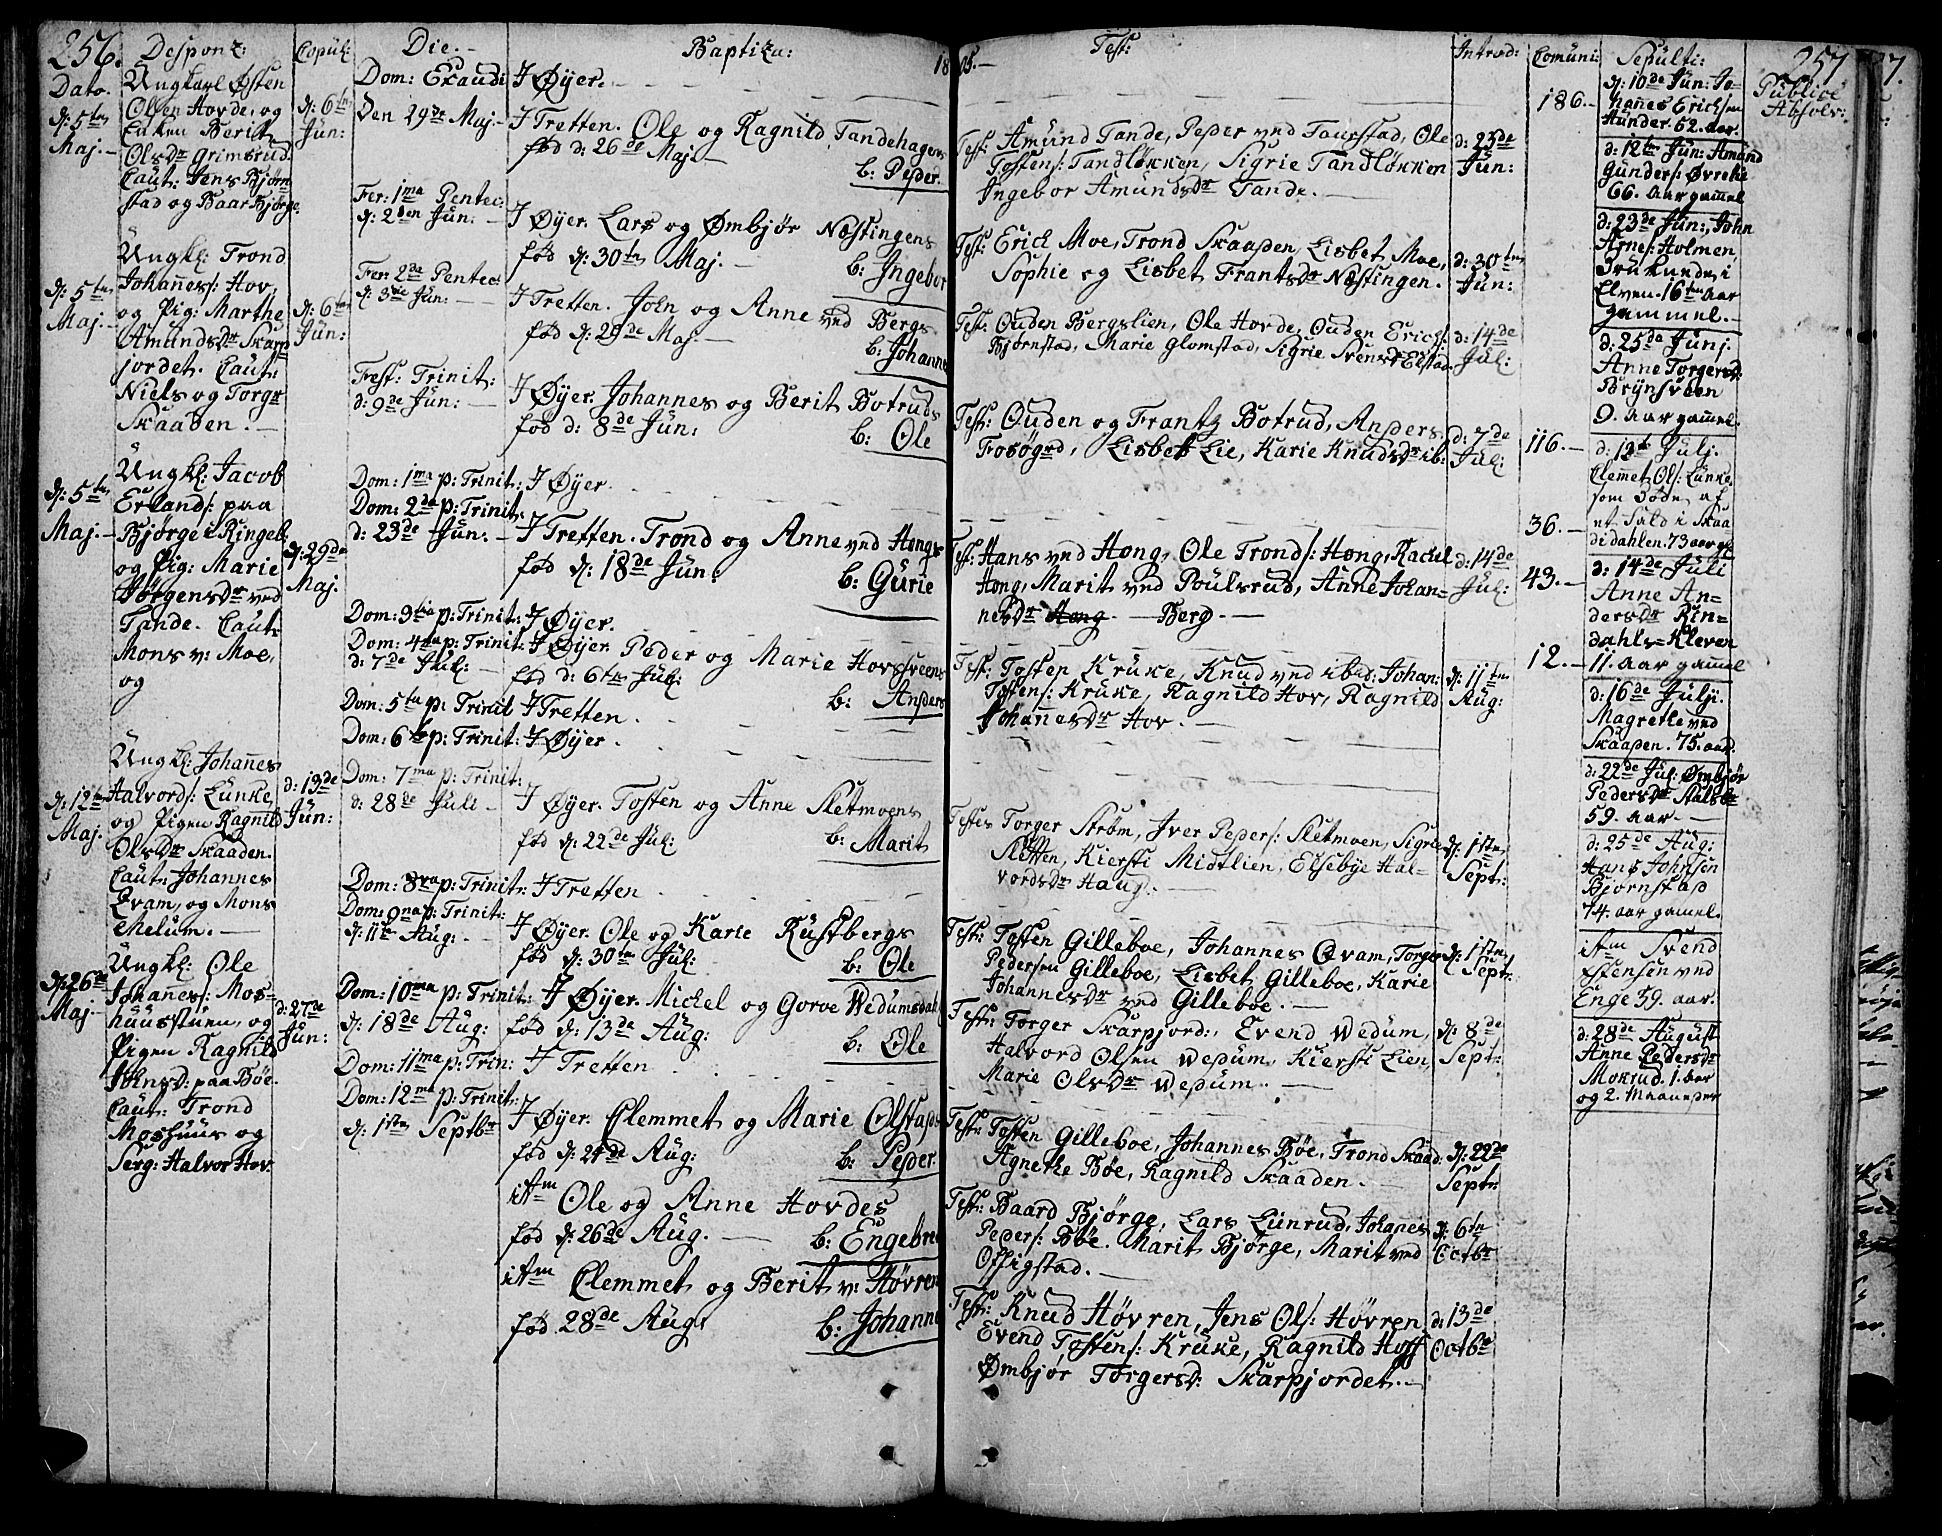 256.
Desponz:
Copul:
Dato.
Ungkarl Østen
Olsen Hovde, og
Enken Berit
Olsdr Grimsrud.
Caut: Jens Bjørn
stad og Baar Bjørge.
d: 5te
Maj.-
d: 6te
Jun:
Ungkl: Trond
Johanes/: Hov,
og Pig: Marthe
Amundsdr Skarp
jordet. Caut:
Niels og Torgr
Skaaden.-
d: 5te
Maj.-
d: 6te
Jun:
Ungkl: Jacob
Erlands/: paa
Bjørge i Ringeb:
og Pig: Marie
Jørgensdr ved
Tande. Caut:
Mons v: Moe,
og
d: 5te
Maj.-
d: 29de
Maj.
Ungkl: Johanes
Halvords/: Lunke,
og Pigen Ragnild
Olsdr Skaaden.
Caut: Johannes
Qvam, og Mons
Melum.-
d: 12te
Maj.
d: 13de
Jun:
Ungkl: Ole
Johanes/: Mos-
huusstuen, og
Pigen Ragnild
Johnsd: paa Bøe.
Caut: Trond
Moshuus og
Serg: Halvor Hov
d: 26de
Maj-
d: 27de
Jun:
Die.-
Baptiza: 1805.-
Dom: Exaudi I Øyer.
Den 29de Maj.- I Tretten. Ole og Ragnild Tandehagens
fød d: 26de Maj.-
b: Peder.
Fer: 1ma Pentec:
d: 2den Jun:- I Øyer. Lars og Ømbjør Næstingens
fød d: 30te Maj.-
b: Ingebor
Fer: 2da Pentec:
d: 3die Jun:- I Tretten. John og Anne ved Bergs
fød d: 29de Maj.-
b: Johanne
Fest: Trinit:
d: 9de Jun:- I Øyer. Johannes og Berit Botruds
fød d: 8de Jun:
b: Ole
Dom: 1ma p: Trinit: I Øyer.
Dom: 2da p: Trinit:
d: 23de Jun:- I Tretten. Trond og Anne ved Hongs
fød d: 18de Jun:
b: Gurie
Dom: 3tia p: Trinit: I Øyer.
Dom: 4ta p: Trinit: I Øyer. Peder og Marie Hovssveens
d: 7de Jul:- fød d: 6te Jul:
b: Anders
Dom: 5ta p: Trinit I Tretten.
Dom: 6ta p: Trinit: I Øyer.
Dom: 7ma p: Trinit:
d: 28de Juli- I Øyer. Tosten og Anne Sletmoens
fød d: 22de Jul:
b: Marit
Dom: 8va p: Trinit: I Tretten
Dom: 9na p: Trinit:
d: 11te Aug:- I Øyer. Ole og Karie Rustbergs
fød d: 30te Jul:
b: Ole
Dom: 10ma p: Trinit: I Øyer. Michel og Goroe Wedumsdal
d: 18de Aug: fød d: 13de Aug:
b: Ole
Dom: 11ma p: Trin: I Tretten
Dom: 12ma p: Trinit:
d: 1ste Septbr I Øyer. Clemmet og Marie Olstads
fød d: 24de Aug:
b: Peder.
itm Ole og Anne Hovdes
fød d: 26de Aug.-
b: Engebre
itm Clemmet og Berit v: Høvren
fød 28de Aug:
b: Johanne
Test:
Introd:
Comuni:
Sepulti:
257
Publice
Absolv:
Test: Amund Tande, Peder ved Taarstad, Ole
Tostens/: Tandløkken, Sigrie Tandløkken
Ingebor Amundsdr Tande.-
d: 23de
Jun:
Test: Erick Moe, Trond Skaaden, Lisbet Moe,
Sophie og Lisbet Frantsdr Næstingen.-
d: 30te
Jun:
Test: Ouden Bergslien, Ole Hovde, Ouden Erichs/:
Bjørnstad, Marie Glomstad, Sigrie Svensdr Elstad.
d: 14de
Jul:
Test: Ouden og Frantz Botrud, Anders
Fosøgrd, Lisbet Lie, Karie Knudsdr ib:
d: 7de
Jul:
Test: Hans ved Hong, Ole Tronds/: Hong, Rachel
Hong, Marit ved Poulsrud, Anne Johan=
nesdr Hong.- Berg.-
d: 14de
Jul:
Test: Tosten Kruke, Knud ved ibid: Johan:
Tostens/: Kruke, Ragnild Hov, Ragnild
Johanesdr Hov.-
d: 11te
Aug:
Testes Torger Strøm, Iver Peders/: Sletmoen, Sigrie
Sletten, Kiersti Midtlien, Elsebye Hal-
vordsdr Haug.-
d: 1ste
Sept:
Test: Tosten Gilleboe, Johannes Qvam, Torger
Pedersen Gilleboe, Lisbet Gilleboe, Karie
Johannesdr ved Gilleboe.-
d: 1ste
Sept:
Test: Torger Skarpjord:, Evend Wedum,
Halvord Olsen Wedum, Kiersti Lien,
Marie Olsdr Wedum.-
d: 8de
Sept:
Test: Tosten Gilleboe, Johannes Bøe, Trond Skaad:
Agnethe Bøe, Ragnild Skaaden.-
d: 22de
Sept:
Test: Baard Bjørge, Lars Lunrud, Johanes
Peders/: Bøe. Marit Bjørge, Marit ved
Offigstad.-
d: 6te
Octbr
Test: Knud Høvren, Jens Ols/: Høvren
Evend Tostens/: Kruke, Ragnild Hoff
Ømbjør Torgersd: Skarpjordet.-
d: 13de
Octbr
186.-
116.-
36.-
43.-
12.-
d: 10de Jun: Jo-
hanes Erichsen
Hunder. 52. aar.
d: 12te Jun: Amund
Gunders/: Øvrelie
66. aar gammel
d: 23de Jun: John
Arnes/: Holmen,
Druknede i
Elven. 16ten aar
gammel.-
d: 25de Junj.
Anne Torgersd:
Brynsveen
9. aar gamel.
d: 12te Julj.
Clemet Ols/: Lunke
som døde af
et Fald i Skaa
dedahlen. 73 aar gl.
d: 14de Juli
Anne An-
dersdr Rin-
dahls=Kleven
11. aar gamel
d: 16de Julji.
Magrethe ved
Skaaden. 75. aar.
d: 22de Jul: Ømbjør
Pedersdr
59. aar.-
d: 25de Aug:
Hans Johnsen
Bjørnstad
74. aar gamel.
itm Svend
Østensen ved
Enge 59. aar.
d: 28de August
Anne Pedersdr
Mokrud. 1. aar
og 2. Maaneder